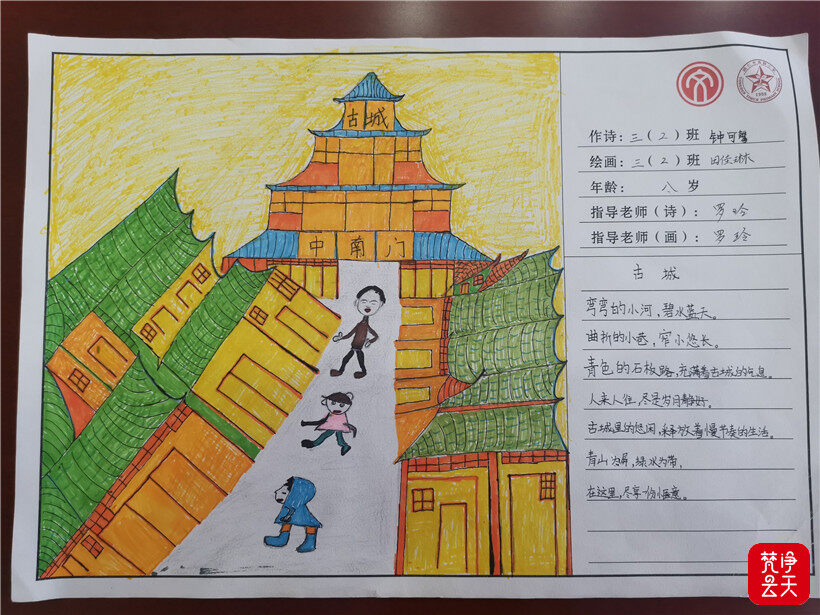 古城
中南门
作诗：三（2）班 钟可馨
绘画：三（2）班 田任琳
年龄： 八 岁
指导老师（诗）： 罗吟
指导老师（画）： 罗玲
古 城
弯弯的小河，碧水蓝天。
曲折的小巷，窄小悠长。
青色的石板路，充满着古城的气息。
人来人往，尽是岁月静好。
古城里的悠闲，释放着慢节奏的生活。
青山为屏，绿水为带，
在这里，尽享一份惬意。
梵净
云天